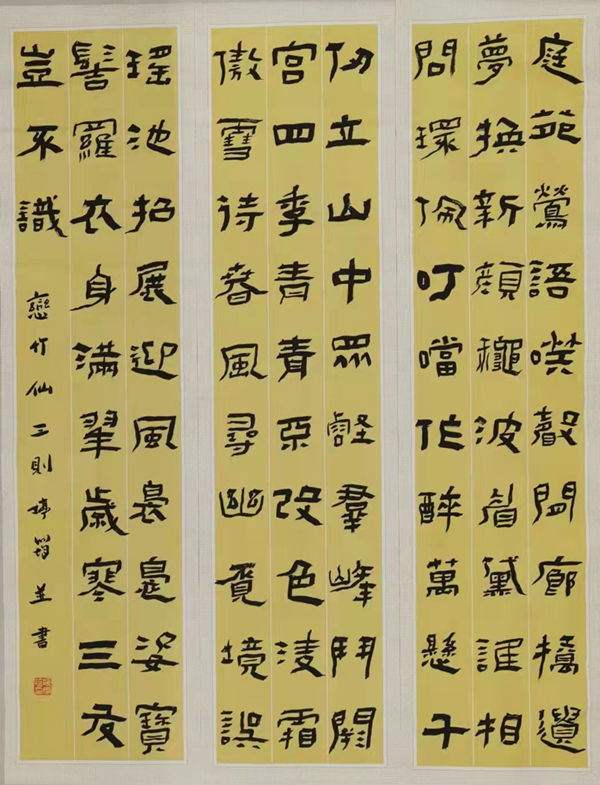 庭苑鶯語噗聲閒廊遺
夢換新顏龝波眉黛誰相
問環佩叮噹作醉萬懸千
仞立山中眾壑羣峰鬥闕
宮四季青青改色淩霜
傲雪待春風尋幽覓境誤
瑤池招展迎風裊裊姿寶
髻羅衣身滿翠歲寒三友
豈不識
戀竹仙二則婷筠並書